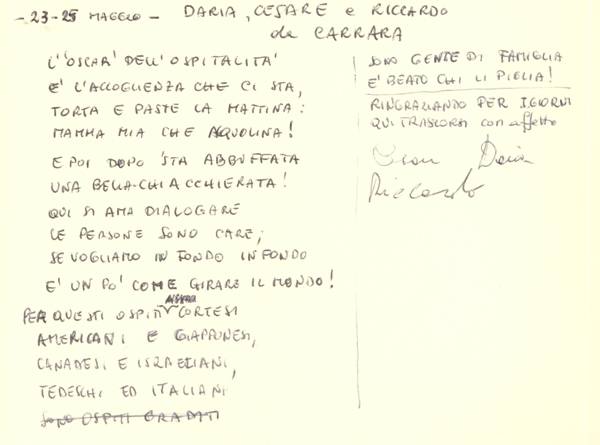 - 23-25 MAGGIO - DARIA, CESARE e RICCARDO
da CARRARA
L'"OSCAR" DELL'OSPITALITA'
E' L'ACCOGLIENZA CHE CI STA,
TORTA E PASTE LA MATTINA:
MAMMA MIA CHE AQUOLINA!
E POI DOPO 'STA ABBUFFATA
UNA BELLA CHIACCHIERATA!
QUI SI AMA DIALOGARE
LE PERSONE SONO CARE;
SE VOGLIAMO IN FONDO IN FONDO
E' UN PO' COME GIRARE IL MONDO!
PER QUESTI OSPITI CORTESI
AMERICANI E GIAPPONESI,
CANADESI E ISRAELIANI,
TEDESCHI ED ITALIANI
SONO OSPITI GRADITI
SONO GENTE DI FAMIGLIA
E' BEATO CHI LI PIGLIA!
RINGRAZIANDO PER I GIORNI
QUI TRASCORSI con affetto
Daria
Riccardo